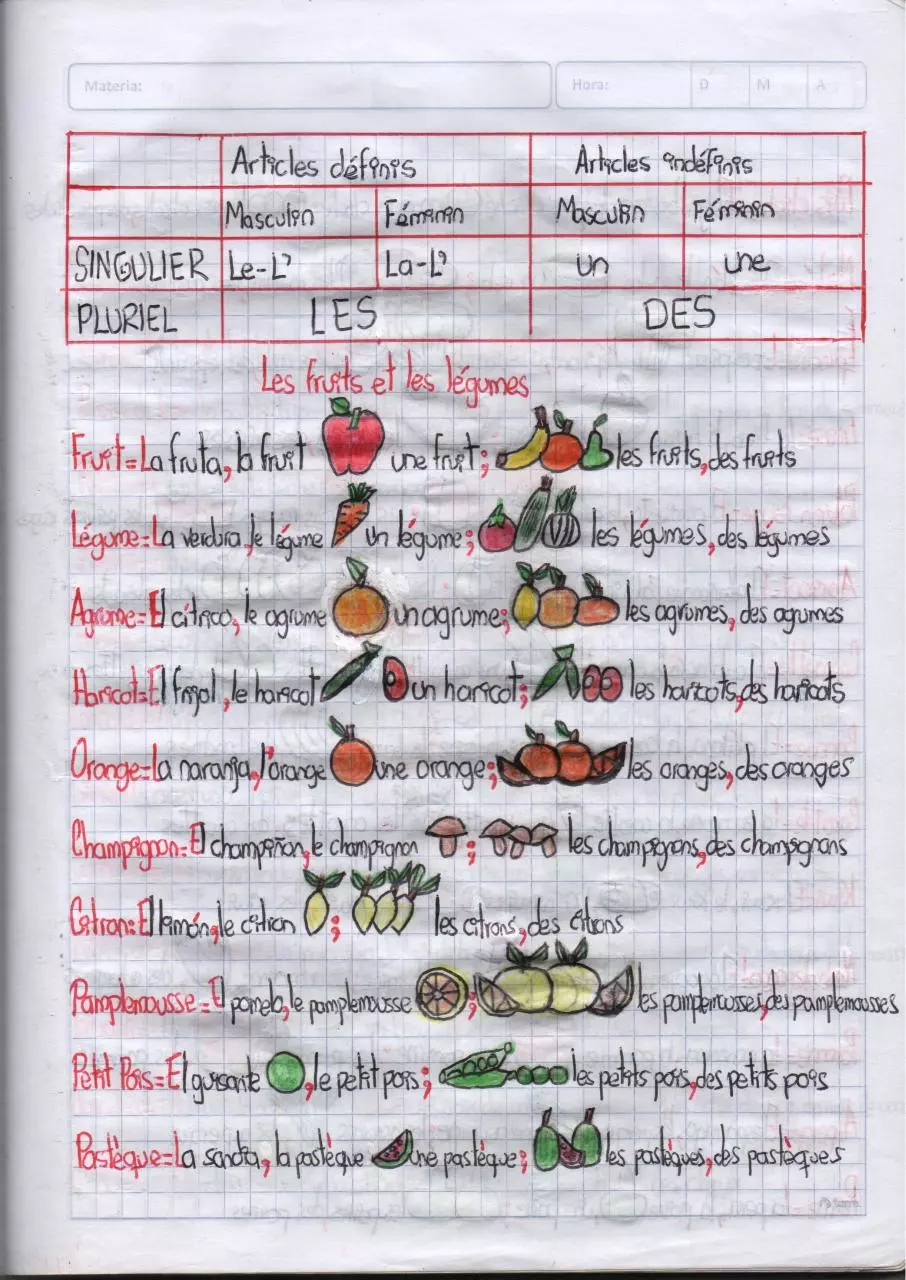 Materia: Hora: D M A
Articles définis Articles indéfinis
Masculin Féminin Masculin Féminin
SINGULIER Le-L' La-L' un une
PLURIEL LES DES
Les fruits et les légumes
Fruit=La fruta, la fruit une fruit; les fruits, des fruits
Légume=La verdura, le légume un légume; les légumes, des légumes
Agrume=El cítrico, le agrume un agrume; les agrumes, des agumes
Haricot=El frijol, le haricot un haricot; les haricots, des haricots
Orange=La naranja, l'orange une orange; les oranges, des oranges
Champignon=El champiñon, le champignon ; les champignons, des champignons
Citron=El limón, le citron ; les citrons, des citrons
Pamplemousse=El pomelo, le pamplemousse ; les pamplemousses, des pamplemousses
Petit Pois=El guisante , le petit pois; les petits pois, des petits pois
Pastèque=La sandia, la pastèque une pastèque; les pastèques, des pastèques